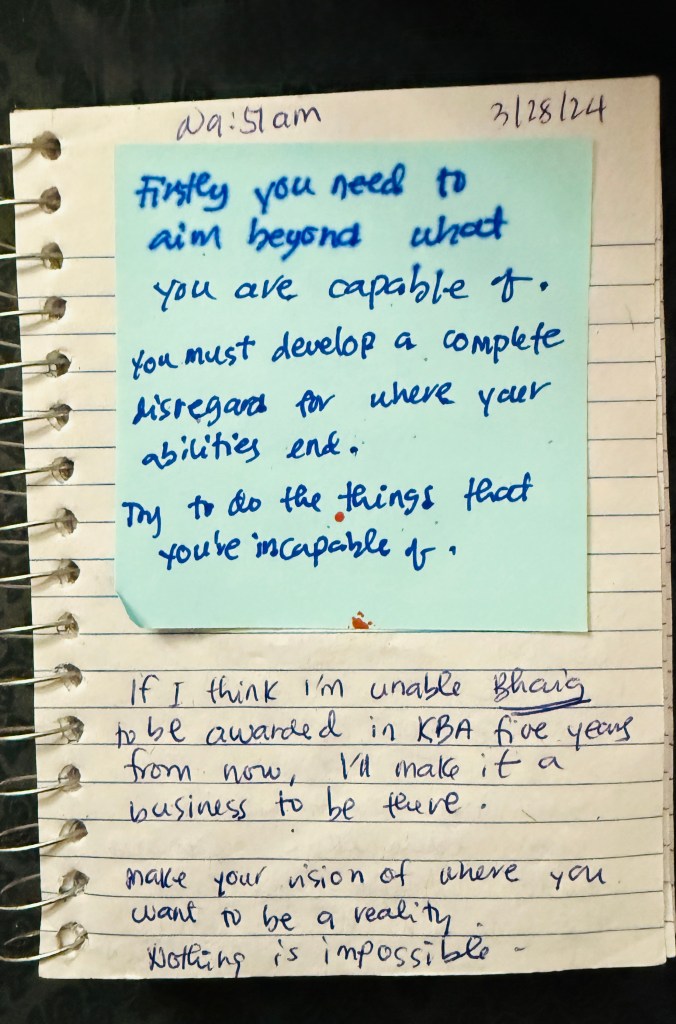 09:51am 3/28/24
Firstly you need to
aim beyond what
you are capable of.
You must develop a complete
disregard for where your
abilities end.
Try to do the things that
you're incapable of.
If I think I'm unable
to be awarded in KBA five years
from now, I'll make it a
business to be there.
make your vision of where you
want to be a reality.
Nothing is impossible.